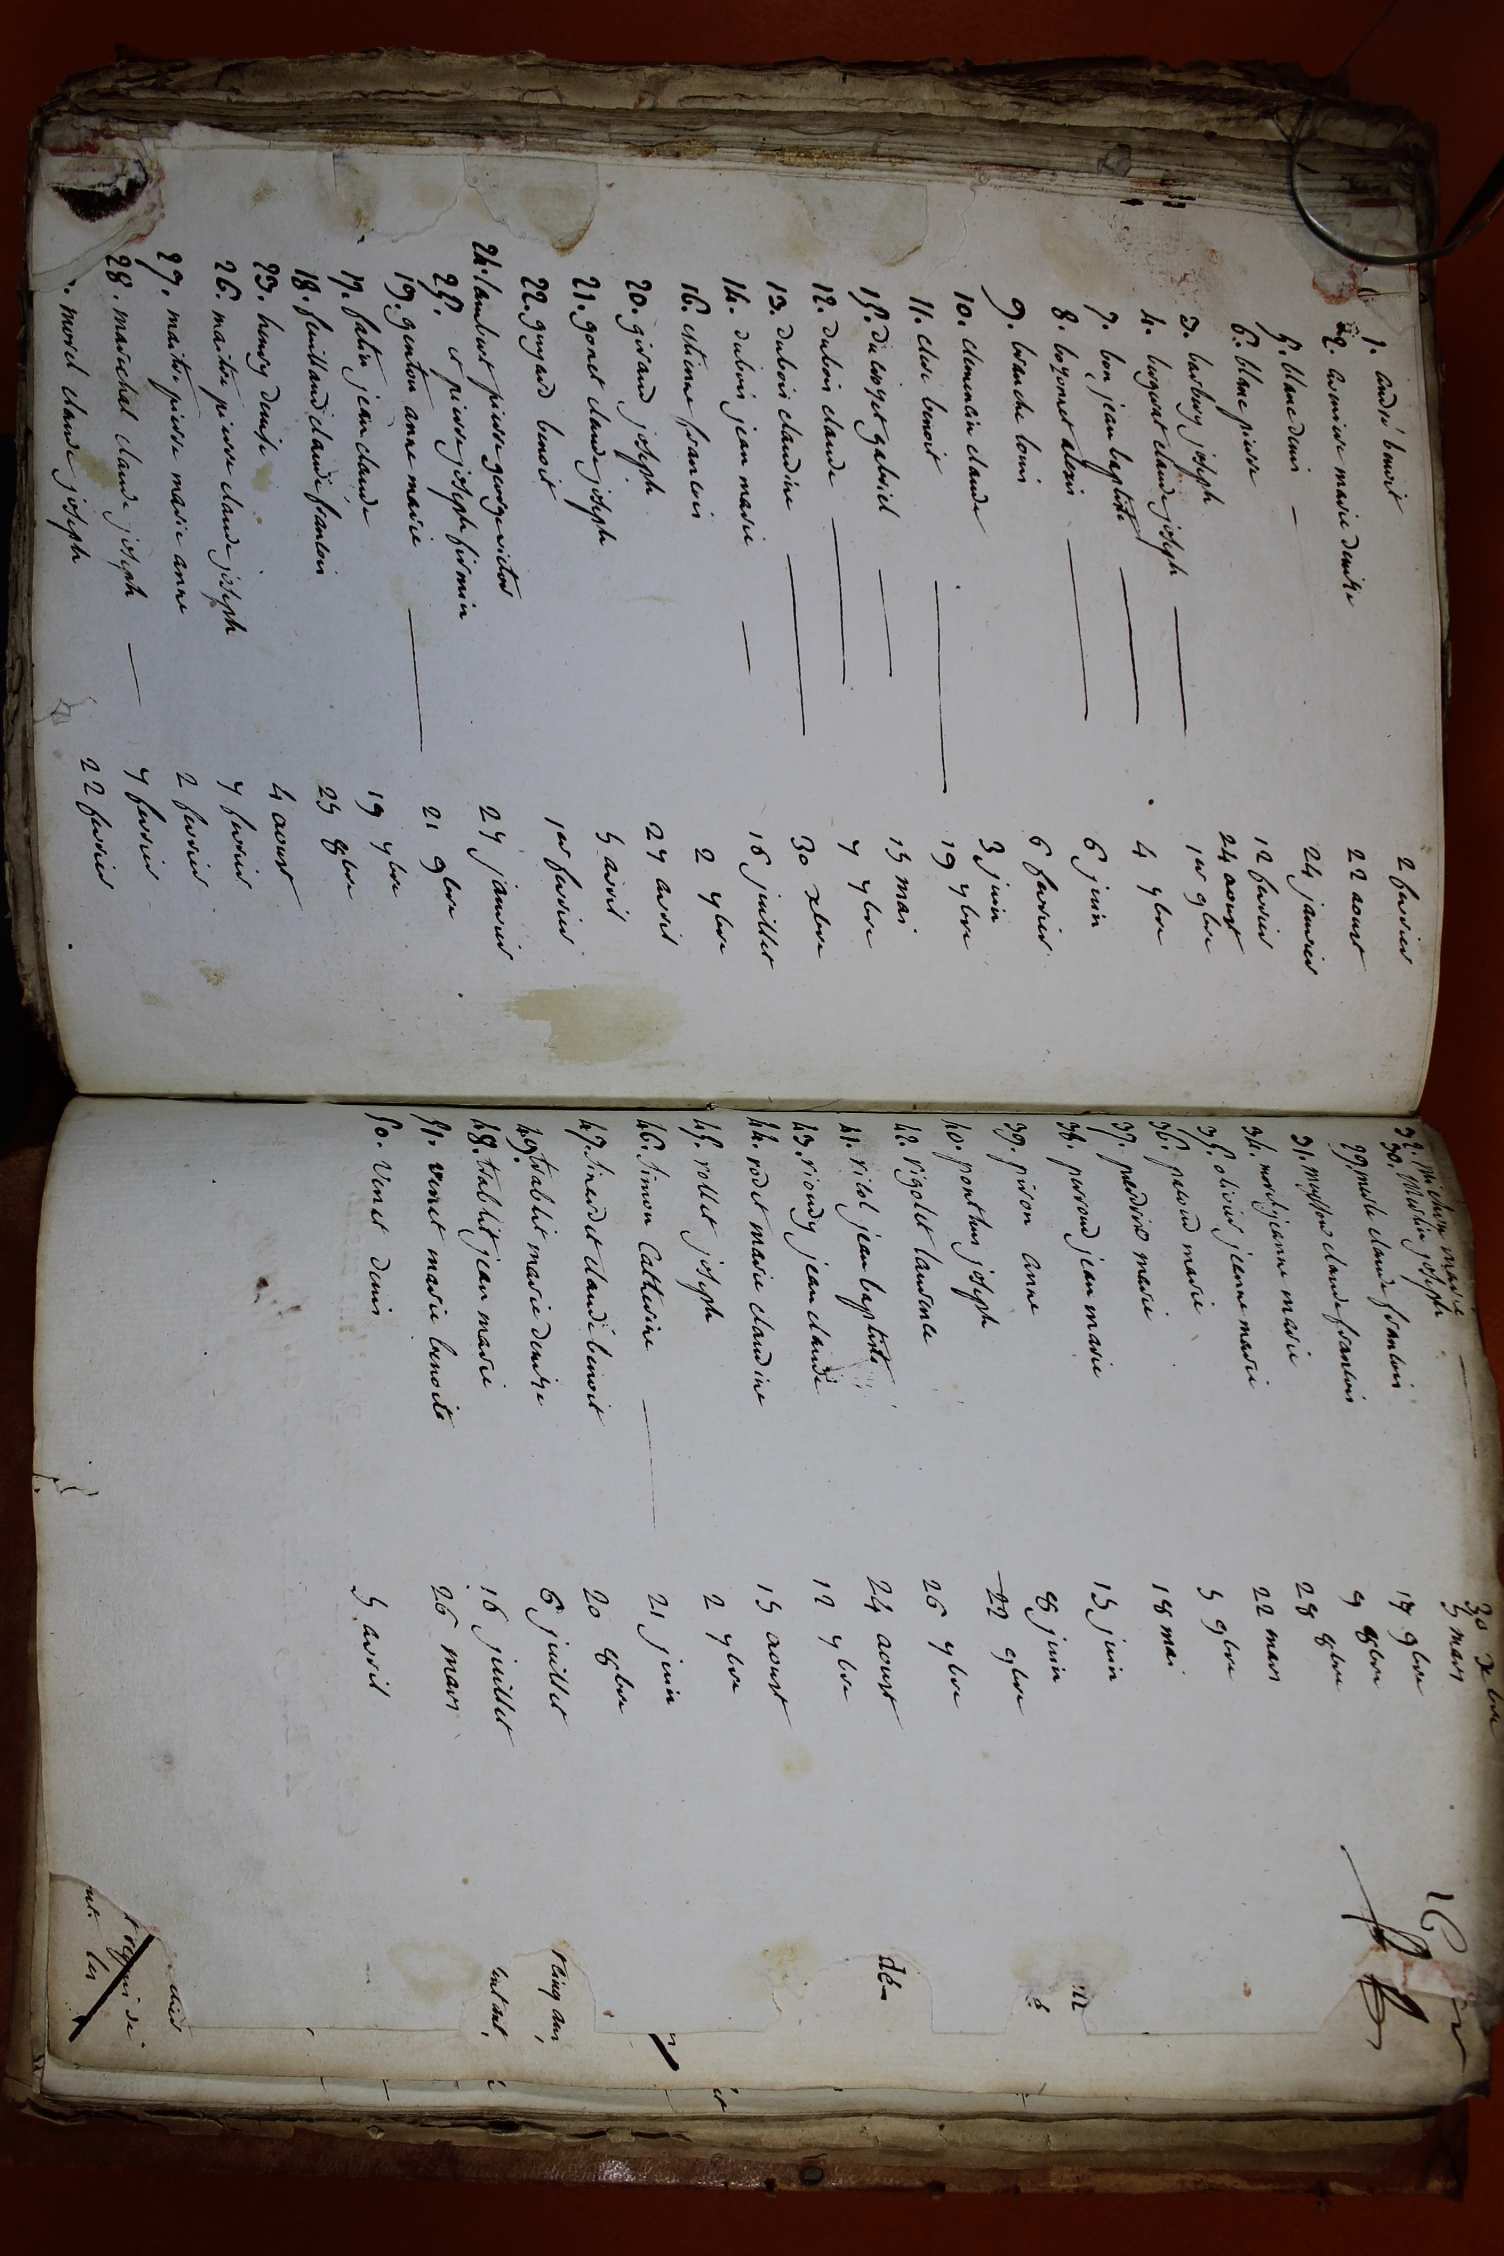 1. andré benoit 2 fevrier
2. armire marie denise 22 aoust
5. blanc denis — 24 janvier
6. blanc pierre 12 fevrier
24 aoust
3. barbury joseph 1er 9bre
4. bugnat claude joseph 4 7bre
7. bon jean baptiste 6 juin
8. bozonet alexis 6 fevrier
9. branche louis 3 juin
10. clemencin claude 19 7bre
11. clere benoit 15 mai
15. gabriel 7 7bre
12. dubois claude 30 xbre
13. dubois claudine 16 juillet
14. dubois jean marie 2 7bre
16. estienne francois 27 avril
20. giraud joseph 5 avril
21. gonet claude joseph 1er fevrier
22. guyard benoit
24. lambert pierre george victor 27 janvier
25. et pierre joseph firmin
19. genton anne marie 21 9bre
17. fatin jean claude 19 7bre
18. feuilland claude francois 25 8bre
23. henry denise 4 aoust
26. maitre pierre claude joseph 7 fevrier
27. maitre pierre marie anne 2 fevrier
28. marechal claude joseph — 7 fevrier
morel claude joseph 22 fevrier
32. michon marie 30 xbre
30. merlin joseph 5 mars
29. merle claude francois 17 9bre
31. claude francois 9 8bre
34. morel jeanne marie 28 8bre
35. olivier jeanne marie 22 mars
36. marie 5 9bre
37. perdrix marie 18 mai
38. perroud jean marie 15 juin
39. piron anne 8 juin
40. ponthus joseph 22 9bre
42. rigolet laurence 26 7bre
41. rilot jean baptiste 24 aoust
43. rioudy jean claude 12 7bre
44. rodet marie claudine 15 aoust
45. rollet joseph 2 7bre
46. simon catherine 21 juin
47. sinardet claude benoit 20 8bre
49. trablit marie denise 6 juillet
48. trablit jean marie 16 juillet
51. venet marie benoite 26 mars
50. venet denis 5 avril
16
dé-
cinq ans,